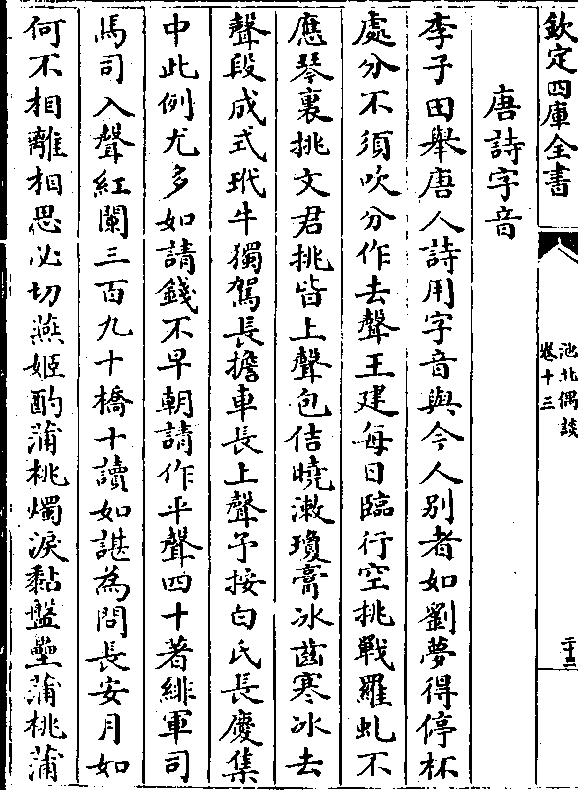 欽定四庫全書
池北偶談
卷十三
二十三
唐詩字音
李子田舉唐人詩用字音與今人别者如劉夢得停杯
處分不須吹分作去聲王建每日臨行空挑戰羅虬不
應琴裏挑文君挑皆上聲包佶曉漱瓊膏冰齒寒冰去
聲段成式玳牛獨駕長擔車長上聲予按白氏長慶集
中此例尤多如請錢不早朝請作平聲四十著緋軍司
馬司入聲紅闌三百九十橋十讀如諶為問長安月如
何不相離相思必切燕姬酌蒲桃燭淚黏盤壘蒲桃蒲